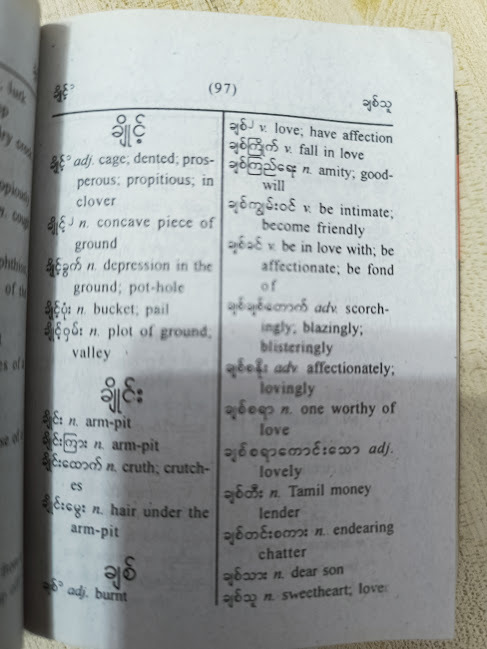 ချိုင့်၁
(97)
ချစ်သူ
ချိုင့်
ချိုင့်၁ adj. cage; dented; pros-
perous; propitious; in
clover
ချိုင့်၂ n. concave piece of
ground
ချိုင့်ခွက် n. depression in the
ground; pot-hole
ချိုင့်ပုံး n. bucket; pail
ချိုင့်ဝှမ်း n. plot of ground;
valley
ချိုင်း
ချိုင်း n. arm-pit
ချိုင်းကြား n. arm-pit
ချိုင်းထောက် n. cruth; crutch-
es
ချိုင်းမွေး n. hair under the
arm-pit
ချစ်
ချစ်၁ adj. burnt
ချစ်၂ v. love; have affection
ချစ်ကြိုက် v. fall in love
ချစ်ကြည်ရေး n. amity; good-
will
ချစ်ကျွမ်းဝင် v. be intimate;
become friendly
ချစ်ခင် v. be in love with; be
affectionate; be fond
of
ချစ်ချစ်တောက် adv. scorch-
ingly; blazingly;
blisteringly
ချစ်စနိုး adv. affectionately;
lovingly
ချစ်စရာ n. one worthy of
love
ချစ်စရာကောင်းသော adj.
lovely
ချစ်တီး n. Tamil money
lender
ချစ်တင်းစကား n. endearing
chatter
ချစ်သား n. dear son
ချစ်သူ n. sweetheart; love